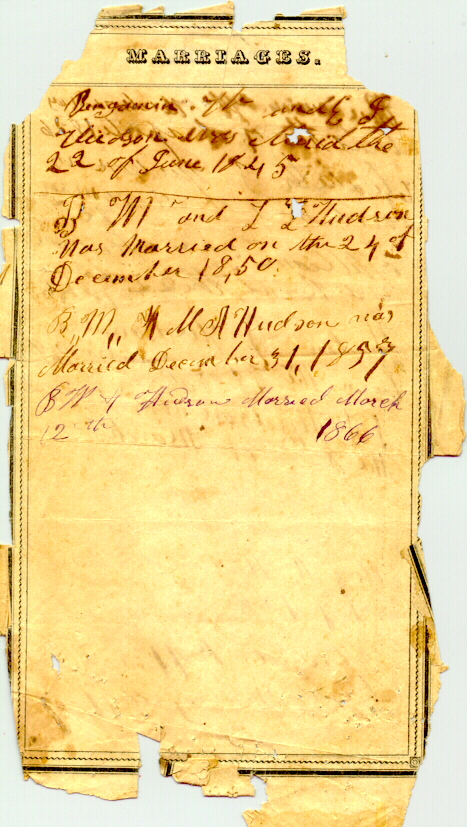 MARRIAGES.
Benjamin M and E J
Hudson Was Marid the
22 of June 1845
B M and L L Hudson
was Married on the 24 of
December 18,50.
B, M,, & M A Hudson was
Married December 31, 1857
Hudson Married March
12th 1866